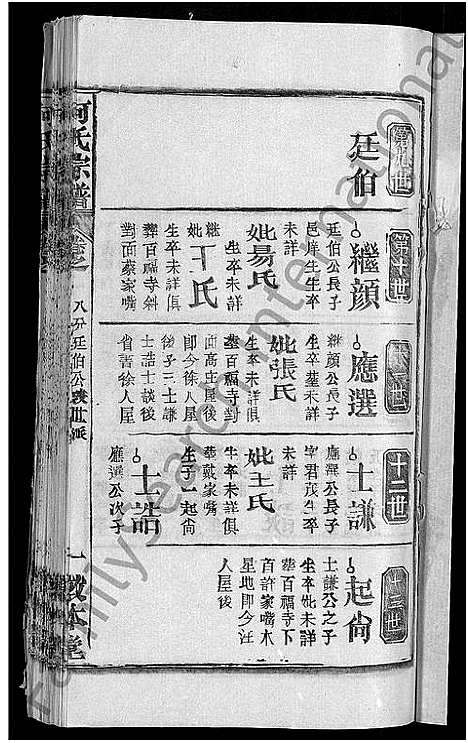 第九世
廷伯
第十世
繼顔
廷伯公長子
邑庠生生卒
未詳
妣易氏
生卒未詳
繼妣丁氏
生卒未詳俱
葬百福寺斜
對面蔡家嘴
應選
繼顔公長子
生卒葬未詳
妣張氏
生卒未詳俱
葬百福寺對
面高士屋後
卽今徐人屋
後子三士謙
士誥士談後
省著徐人屋
十二世
士謙
應選公長子
字君茂生卒
未詳
妣王氏
生卒未詳俱
葬戴家嘴
生子一起尙
士誥
應選公次子
十三世
起尙
士謙公之子
生卒妣未詳
葬百福寺下
首許家嘴木
星地卽今汪
人屋後
何氏宗譜
卷之
八分廷伯公
世派
一
敦本堂
familysearch international